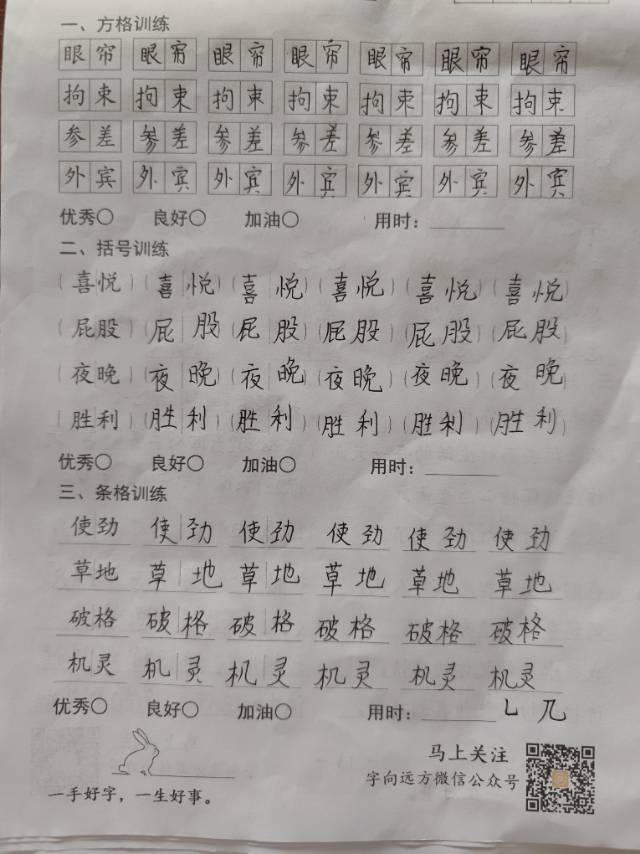 一、方格训练
眼帘 眼帘 眼帘 眼帘 眼帘 眼帘 眼帘
拘束 拘束 拘束 拘束 拘束 拘束 拘束
参差 参差 参差 参差 参差 参差 参差
外宾 外宾 外宾 外宾 外宾 外宾 外宾
优秀○ 良好○ 加油○ 用时：______
二、括号训练
(喜悦) (喜悦) (喜悦) (喜悦) (喜悦) (喜悦)
(屁股) (屁股) (屁股) (屁股) (屁股) (屁股)
(夜晚) (夜晚) (夜晚) (夜晚) (夜晚) (夜晚)
(胜利) (胜利) (胜利) (胜利) (胜利) (胜利)
优秀○ 良好○ 加油○ 用时：______
三、条格训练
使劲 使劲 使劲 使劲 使劲 使劲
草地 草地 草地 草地 草地 草地
破格 破格 破格 破格 破格 破格
机灵 机灵 机灵 机灵 机灵 机灵
优秀○ 良好○ 加油○ 用时：______ ㇄ 几
马上关注
字向远方微信公众号
一手好字，一生好事。